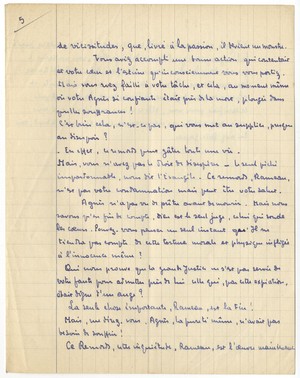 5
de vicissitudes, que, livré à la passion, il traîne au monde.
Vous aviez accompli une bonne action qui contentait
et votre cœur et l'estime qu'inconsciemment vous vous portiez.
Mais vous avez failli à votre tâche, et cela, au moment même
où votre Agnès si confiante était près de la mort, plongée dans
quelles souffrances !
C'est bien cela, n'est-ce pas, qui vous met au supplice, jusqu'
au désespoir ?
En effet, le remords peut gâter toute une vie.
Mais, vous n'avez pas le droit de désespérer - le seul péché
impardonnable, nous dit l'Évangile. Ce remords, Rameau,
n'est pas votre condamnation mais peut être votre salut.
Agnès n'a pas vu de prêtre avant de mourir. Mais nous
savons qu'en fin de compte, Dieu est le seul juge, celui qui sonde
les cœurs. Pensez vous un seul instant que Il ne
tiendra pas compte de cette torture morale et physique infligée
à l'innocence même !
Qui nous prouve que la grande Justice ne s'est pas servie de
votre faute pour admettre près de lui celle qui, par cette expiation,
était digne d'un ange !
La seule chose importante, Rameau, est la fin !
Mais, me direz vous, Agnès, la pureté même, n'avait pas
besoin de souffrir !
Ce Remords, cette inquiétude, Rameau, est l'œuvre